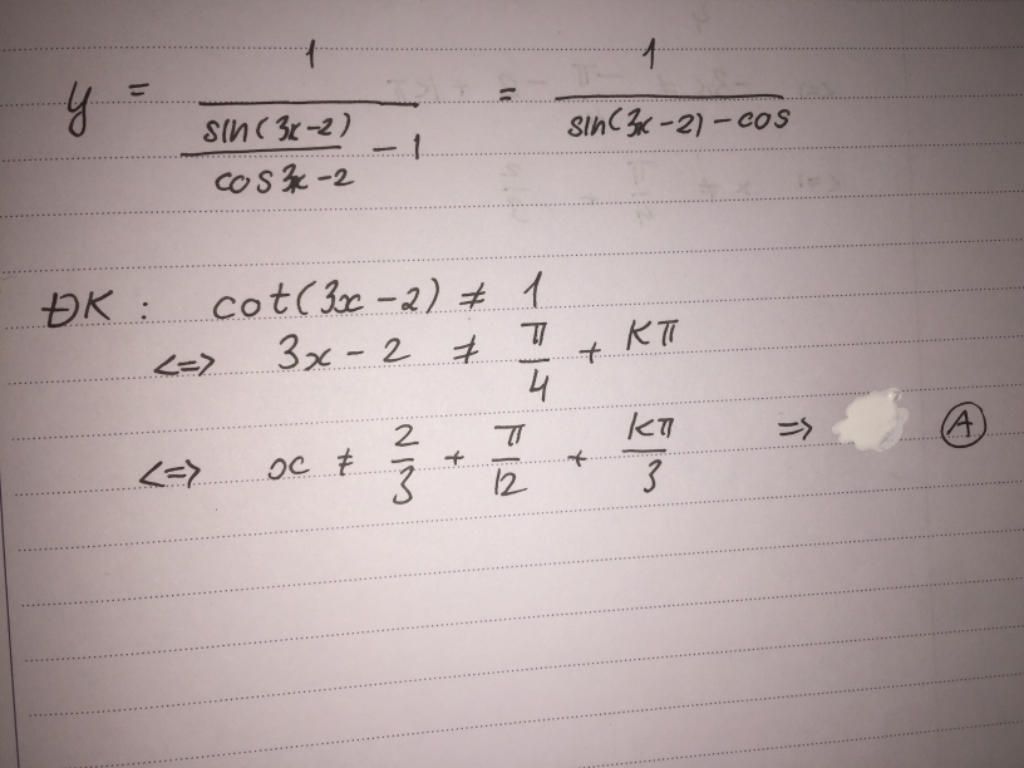 y = 1 / (sin(3x-2) / cos 3x-2 - 1) = 1 / (sin(3x-2) - cos)
ĐK : cot(3x-2) ≠ 1
<=> 3x-2 ≠ π/4 + Kπ
<=> x ≠ 2/3 + π/12 + kπ/3 => A